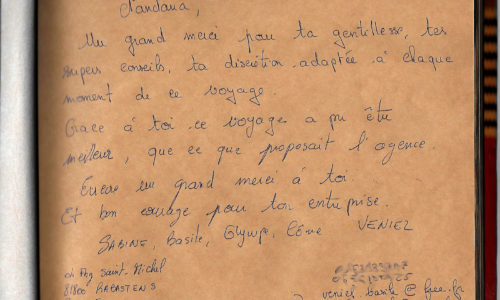 Nandana,
Un grand merci pour ta gentillesse, tes
supers conseils, ta discrétion adaptée à chaque
moment de ce voyage.
Grace à toi ce voyage a pu être
meilleur, que ce que proposait l'agence.
Encore un grand merci à toi.
Et bon courage pour ton entreprise.
SABINE, Basile, Côme VENIEL
Saint Michel
81800 RABASTENS
veniel.basile@free.fr